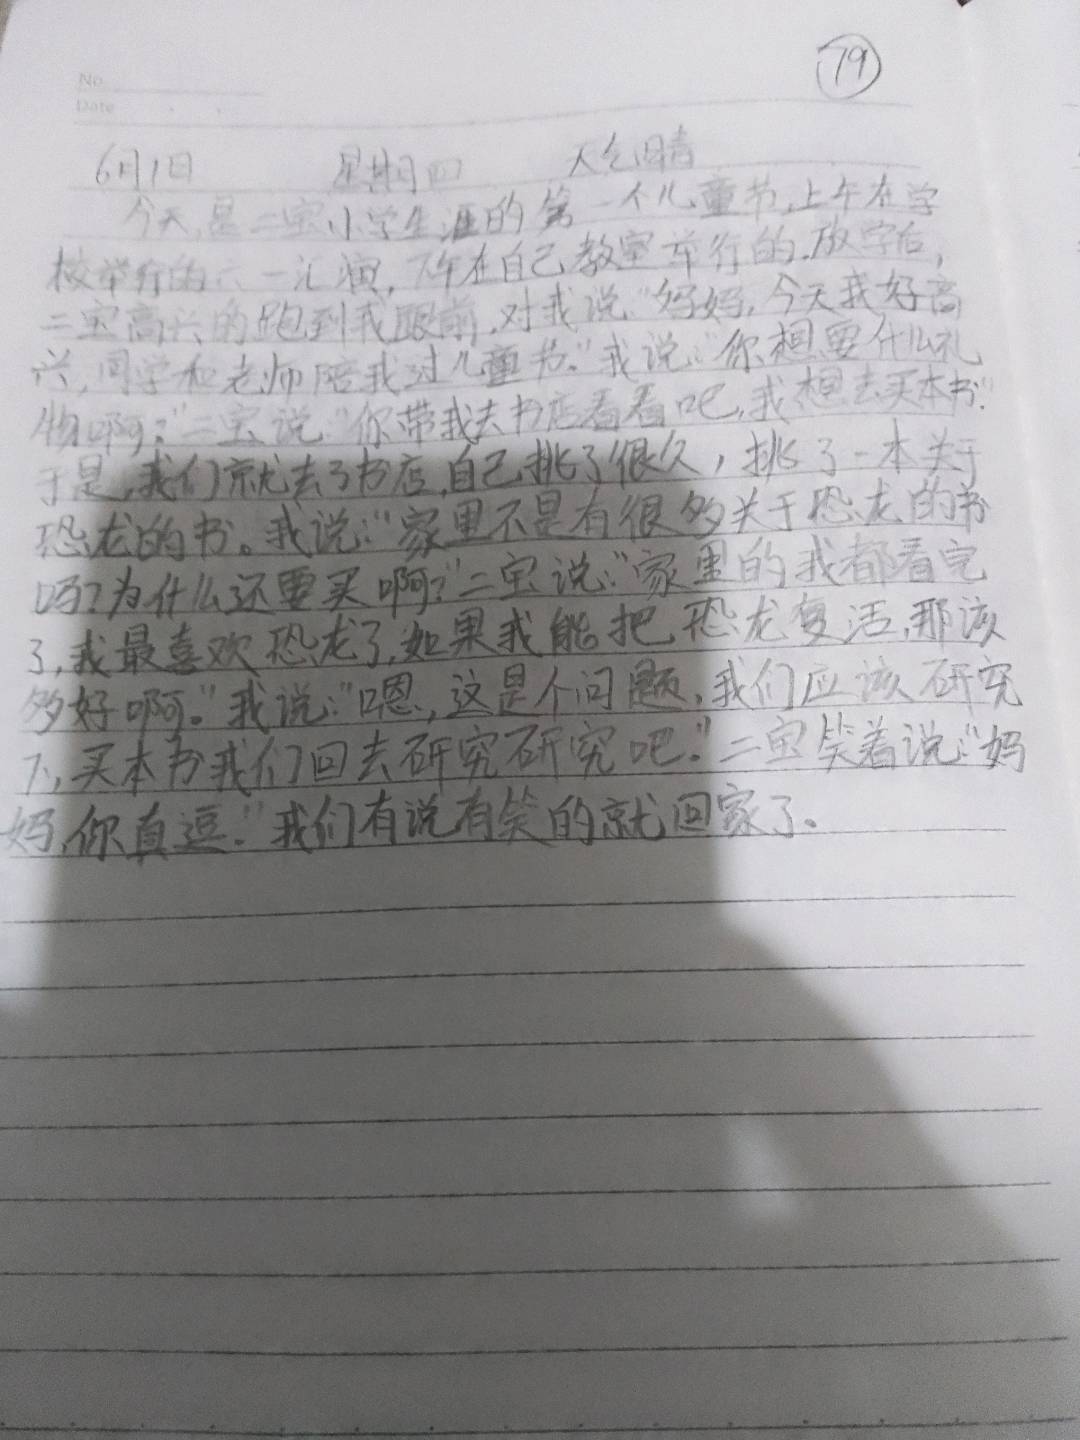 79
No
Date
6月1日 星期四 天气晴
今天,是二宝小学生涯的第一个儿童节,上午在学
校举行的六一汇演,下午在自己教室举行的.放学后,
二宝高兴的跑到我跟前,对我说:"妈妈,今天我好高
兴,同学和老师陪我过儿童节。"我说:"你想要什么礼
物啊?"二宝说:"你带我去书店看看吧,我想去买本书."
于是,我们就去了书店,自己挑了很久,挑了一本关于
恐龙的书。我说:"家里不是有很多关于恐龙的书
吗?为什么还要买啊?"二宝说:"家里的我都看完
了,我最喜欢恐龙了,如果我能把恐龙复活,那该
多好啊。"我说:"嗯,这是个问题,我们应该研究
下,买本书我们回去研究研究吧."二宝笑着说:"妈
妈,你真逗."我们有说有笑的就回家了.